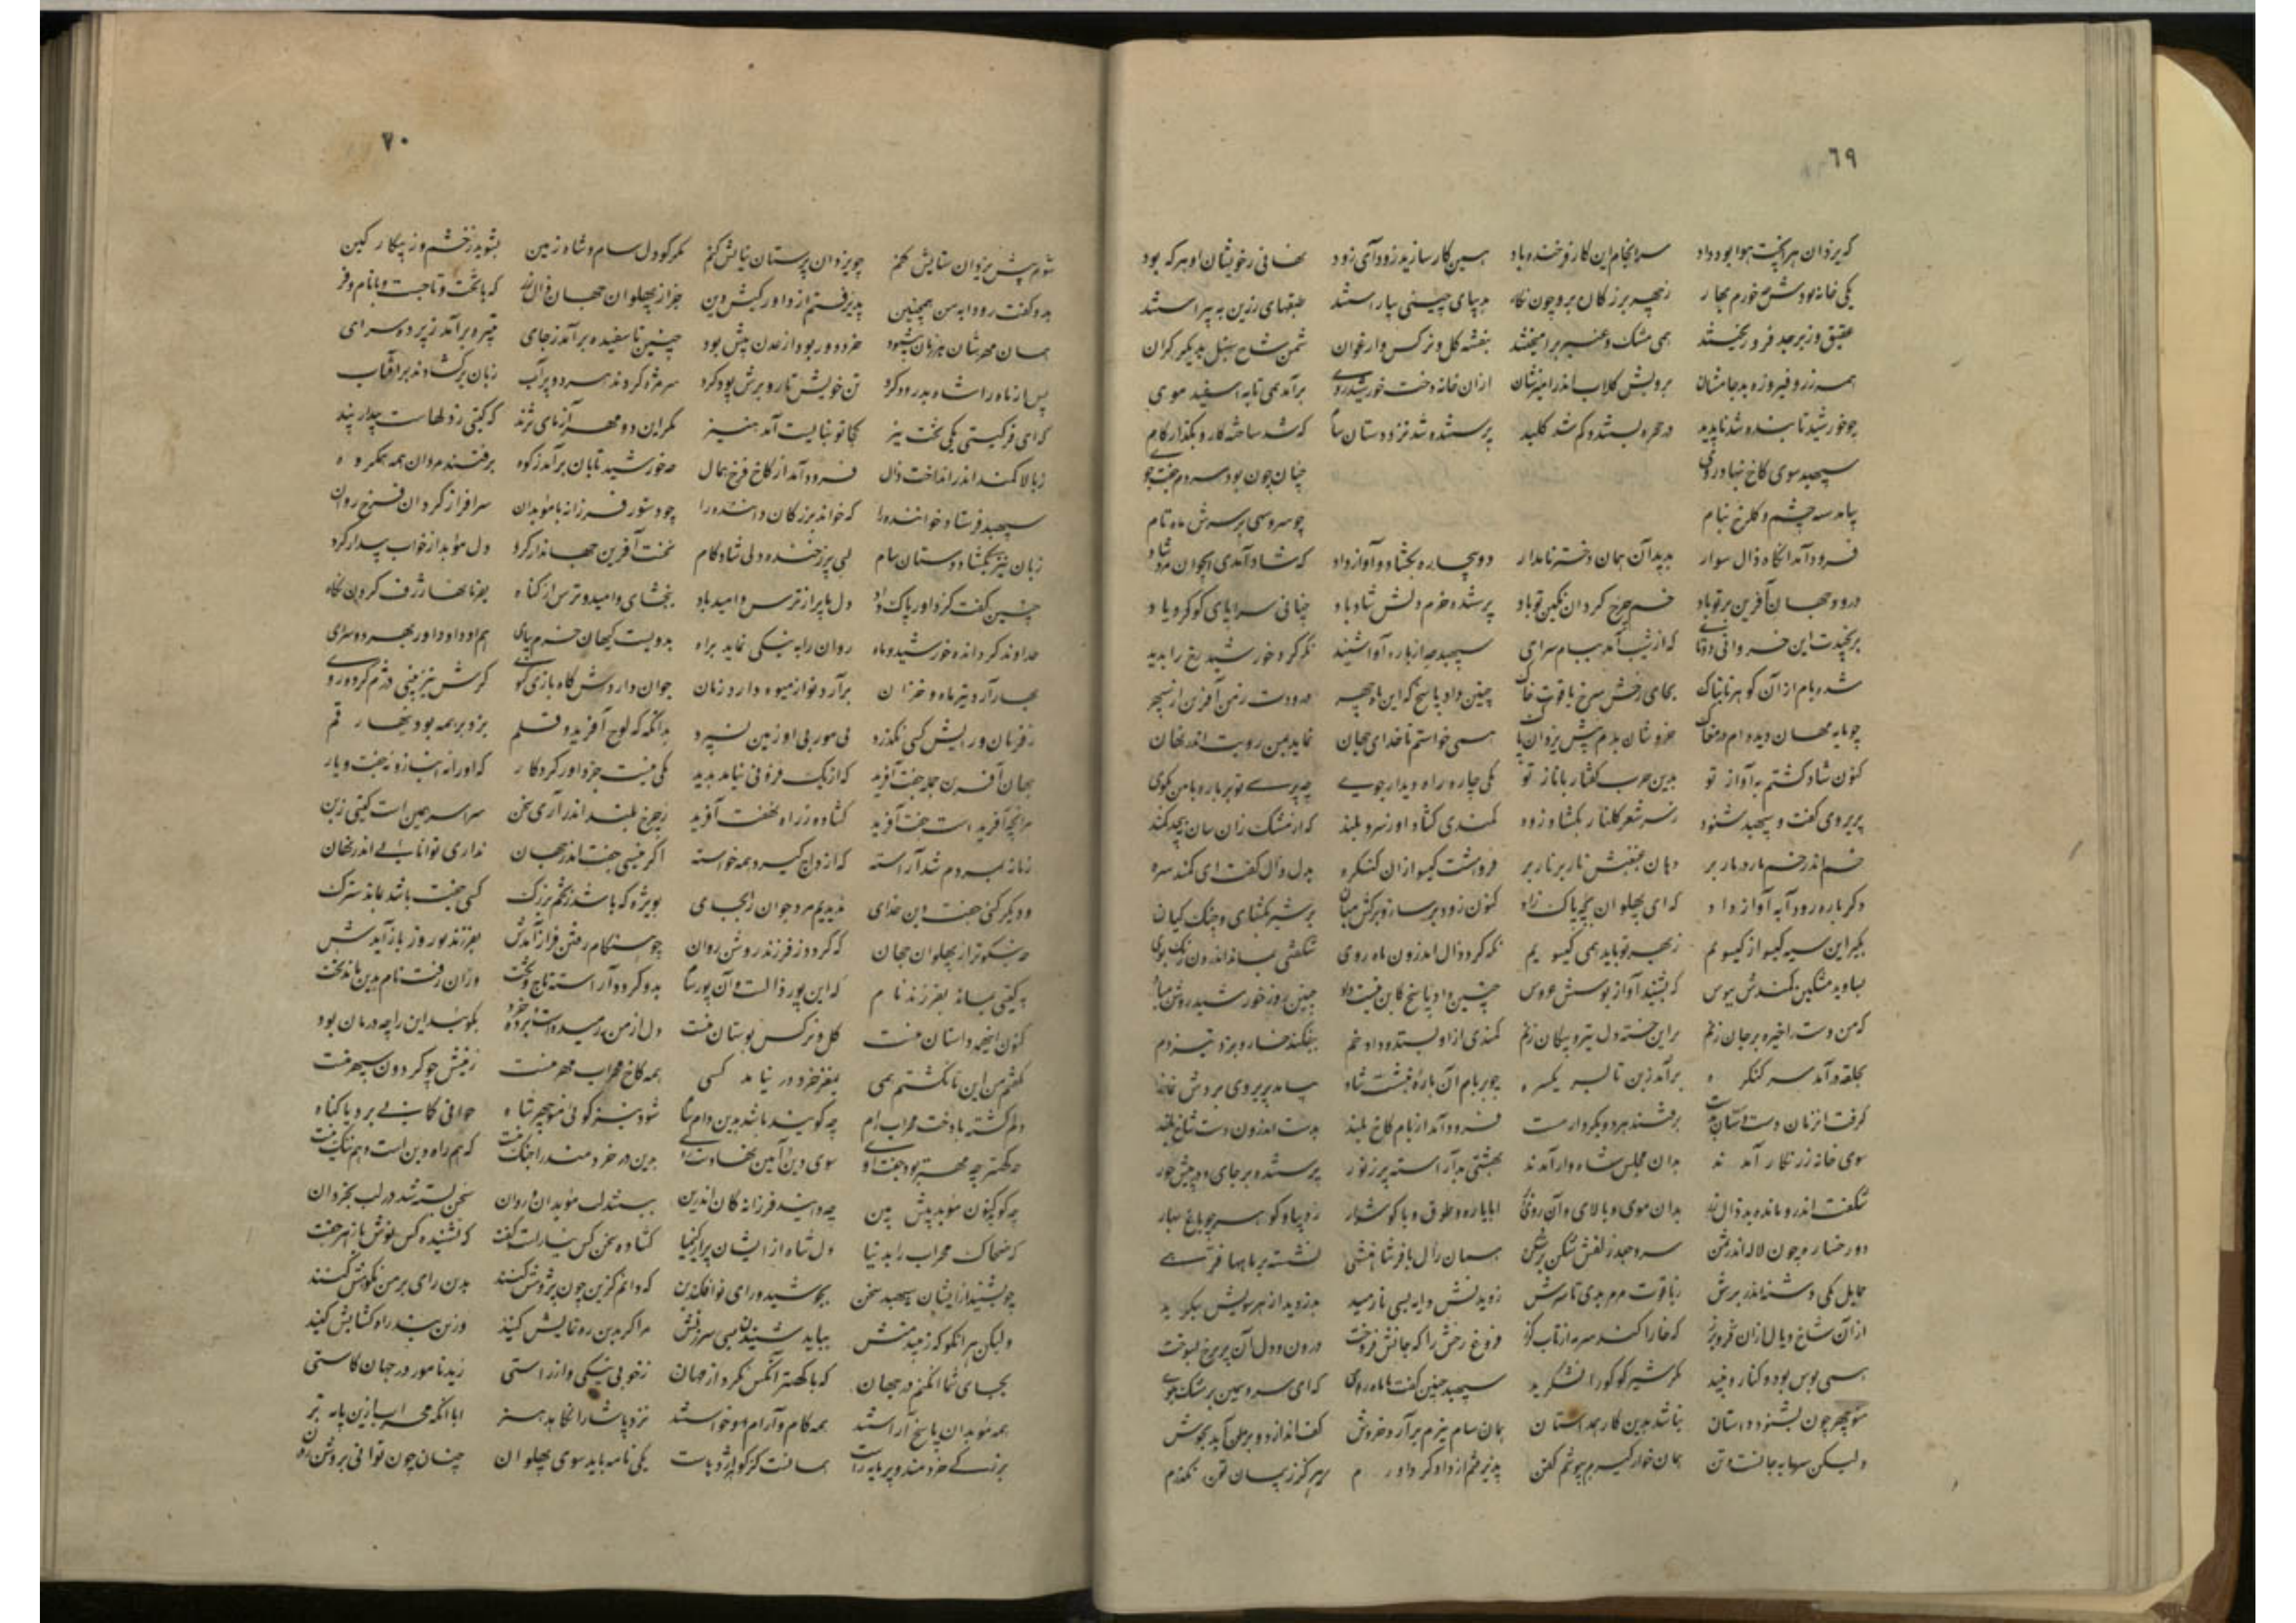 ٦٩
که یزدان هر آنچت هوا بود داد سرانجام این کار فرخنده باد همین کار سازید زود آی زود نهانی ز خویشان او هر که بود
یکی خانه بودش خرم بهار ز چهر بزرگان برو چون نگار بدیبای چینی بیاراستند طبقهای زرین به پیراستند
عقیق و زبرجد فرو ریختند همی مشک و عنبر برآمیختند بنفشه گل و نرگس و ارغوان سمن شاخ سنبل بدیگر کران
همه زر و فیروزه بد جامشان بروشن گلاب اندر آمیزشان ازان خانه دخت خورشید روی برآمد همی تا به
چو خورشید تابنده شد ناپدید در حجره بستند و گم شد کلید پرستنده شد نزد دستان سام که شد ساخته کار و بگذار گام
سپهبد سوی کاخ بنهاد روی چنان چون بود مردم جفت جوی
سیه چشم و گلرخ ببام چو سرو سهی بر سرش ماه تام
فرود آمد آنگاه ذال سوار بدید آن همان دختر نامدار دو بیجاده بگشاد و آواز داد که شاد آمدی ای جوان مرد شاد
درود جهان آفرین بر تو باد خم چرخ گردان نگین تو باد پرستنده خرم دلش شاد باد چنانی سراپای کو کرد یاد
برنجیدت این خسروانی دوپای که از شب آمد ببام سرای سپهبد چه از باره آوا شنید نگه کرد خورشید رخ را بدید
شده بام ازان گوهر تابناک بجای رخش سرخ یاقوت خاک چنین داد پاسخ که ای ماه چهر درودت ز من آفرین از سپهر
چو مایه مهان دیده ام در مغاک خروشان بدم پیش یزدان پاک همی خواستم تا خدای جهان نماید بمن رویت اندر نهان
کنون شاد گشتم به آواز تو بدین چرب گفتار با ناز تو یکی چاره راه دیدار جوی چه پرسی تو بر باره با من بگوی
پریروی گفت و سپهبد شنود ز سر شعر گلنار بگشاد زود کمندی گشاد او ز سرو بلند که از مشک زان سان نپیچد کمند
خم اندر خم و مار بر مار بر دران غبغبش نار بر نار بر فروهشت گیسو ازان کنگره بدل ذال گفت ای کمند سره
دگر باره رودابه آواز داد که ای پهلوان بچه پاک زاد کنون زود بر ساز و برکش میان بر شیر بگشای و چنگ کیان
بگیر این سیه گیسو از یک سویم ز بهر تو باید همی گیسویم نگه کرد ذال اندران ماه روی شگفتی بماند اندران رنگ و بوی
بساوید مشکین کمندش ببوس که بشنید آواز بوسش عروس چنین داد پاسخ که این نیست داد چنین روز خورشید روشن مباد
که من دست را خیره بر جان زنم براین خسته دل تیر و پیکان زنم کمندی ازو بستد و داد خم بیفکند خوار و نزد هیچ دم
بحلقه در آمد سر کنگره برآمد ز بن تا بسر یکسره چو بر بام آن باره بنشست شاه بیامد پریروی و بردش نماز
گرفت آنزمان دست دستان بدست برفتند هر دو بکردار مست فرود آمد از بام کاخ بلند بدست اندرون دست شاخ بلند
سوی خانه زرنگار آمدند بدان مجلس شاهوار آمدند بهشتی بد آراسته پر ز نور پرستنده بر جای و در پیش حور
شگفت اندرو مانده بد ذال زر بدان موی و بالای و آن روی و فر ابا یاره و طوق و با گوشوار ز دیبا و گوهر چو باغ بهار
دو رخسار چون لاله اندر سمن سر جعد زلفش شکن بر شکن همان ذال با فر شاهنشهی نشسته بر ماه با فرهی
حمایل یکی دشنه اندر برش ز یاقوت سرخ بدی تا سرش ز دیدنش رودابه می نارمید بدزدیده از هر سویش بنگرید
ازان شاخ و یال ازان فر و برز که خارا کند سرمه از تاب گرز فروغ رخش را که جانش فروخت درو دل آن پریرخ بسوخت
همی بوس بود و کنار و نبید مگر شیر کو گور را نشکرید سپهبد چنین گفت با ماه روی که ای سرو سیمین پر مشک بوی
منوچهر چون بشنود داستان نباشد بدین کار همداستان همان سام نیرم برآرد خروش کف اندازد و بر من آید بجوش
ولیکن سر مایه جانست و تن همان خوار گیرم بپوشم کفن پذیرفتم از داد گر داورم که هرگز ز پیمان تو نگذرم
٧٠
شوم پیش یزدان ستایش کنم چو یزدان پرستان نیایش کنم مگر کو دل سام و شاه زمین بشوید ز خشم و ز پیکار و کین
بدو گفت رودابه من همچنین پذیرفتم از داور کیش و دین جز از پهلوان جهان ذال زر که با تخت و تاجست و با نام و فر
همان مهرشان هر زمان بیش بود خرد دور بود آرزو پیش بود چنین تا سفیده برآمد ز جای تبیره برآمد ز پرده سرای
پس آن ماه را شاه بدرود کرد تن خویش تار و برش پود کرد سر مژه کردند هر دو پر آب زبان برگشادند بر آفتاب
که ای فر گیتی یکی لخت نیز نبایست آمد هنیز مگر این دو مهر آزمای نژند که گیتی
ز بالا کمند اندر انداخت ذال فرود آمد از کاخ فرخ همال چه خورشید تابان برآمد ز کوه برفتند مردان همه همگروه
سپهبد فرستاد خواننده را که خواند بزرگان داننده را چو دستور فرزانه با موبدان سرافراز گردان فرخ روان
زبان تیز بگشاد دستان سام لبی پر ز خنده دلی شاد کام نخست آفرین جهاندار کرد دل موبد از خواب بیدار کرد
چنین گفت کز داور پاک داد دل ما پر از ترس و امید باد ببخشای و امید و ترس از گناه بفرمانها ژرف کردن نگاه
خداوند گردنده خورشید و ماه روان را به نیکی نماید براه بدویست کیهان خرم بپای هم او داد و داور بهر دو سرای
بهار آرد و تیر ماه و خزان برآرد نو از میوه دارد رزان جوان دارد ش گاه با رنگ و بوی گرش پیر بینی دژم کرده روی
ز فرمان و رایش کسی نگذرد پی مور بی او زمین نسپرد بدانگه که لوح آفرید و قلم بزد بر همه بود نیها رقم
جهان آفرین جمله جفت آفرید که از یک فزونی نیامد پدید یکی نیست جز داور کردگار که او را نه انباز و نه جفت و یار
هر آنچه آفریدست جفت آفرید گشاده ز راه نهفت آفرید ز چرخ بلند اندر آری سخن سراسر همین است گیتی ز بن
زمانه بمردم شد آراسته که ازوج گیرد همه خواسته اگر نیستی جفت اندر جهان نداری توانایی اندر نهان
و دیگر که بی جفت دین خدای ندیدیم مرد جوان را بجای بویژه که باشد ز تخم بزرگ کسی جفت باشد نماند سترگ
چه نیکوتر از پهلوان جهان که گردد ز فرزند روشن روان چو هنگام رفتن فراز آمدش بفرزند نو روز باز آیدش
به گیتی بماند بفرزند نام که این پور ذالست و آن پور سام بدو گردد آراسته تاج و تخت ازان رفت نام بدین ماند بخت
کنون اینهمه داستان منست گل و نرگس بوستان منست دل از من رمیدست و برده خرد بگوئید این را چه درمان بود
نگفتم من این تا نگشتم غمی بمغز خرد در نیامد کمی همه کاخ مهراب مهر منست زمینش چو گردون سپهر منست
دلم گشته با دخت مهراب رام چه گویند باشد بدین رام سام شود نیز گوئی منوچهر شاه جوانی گمانی برد یا گناه
چه کهتر چه مهتر بود جفت جوی سوی دین و آئین نهادست روی بدین در خردمند را جنگ نیست که هم راه دین است و هم ننگ نیست
چه گوید کنون موبد پیش بین چه دانند فرزانگان اندرین ببستند لب موبدان و روان سخن بسته شد در لب بخردان
که ضحاک مهراب را بد نیا دل شاه از ایشان پر از کیمیا گشاده سخن کس نیارست گفت که نشنید کس نوش با زهر جفت
چو نشنید از ایشان سپهبد سخن بجوشید و رای نو افکند بن که دانم که زین چون پژوهش کنند بدین رای بر من نکوهش کنند
ولیکن هر آنکو که زید منش بباید شنیدن بسی سرزنش مرا گر بدین ره نمایش کنید وزین بند راه گشایش کنید
بجای شما آن کنم در جهان که با کهتر آن کس نکرد از مهان ز خوبی و نیکی و از راستی ز بد نامور در جهان کاستی
همه موبدان پاسخ آراستند همه کام و آرام او خواستند ابا آنکه مهراب ازین پایه نیز
یکی نامه باید سوی پهلوان چنان چون توانی بروشن روان